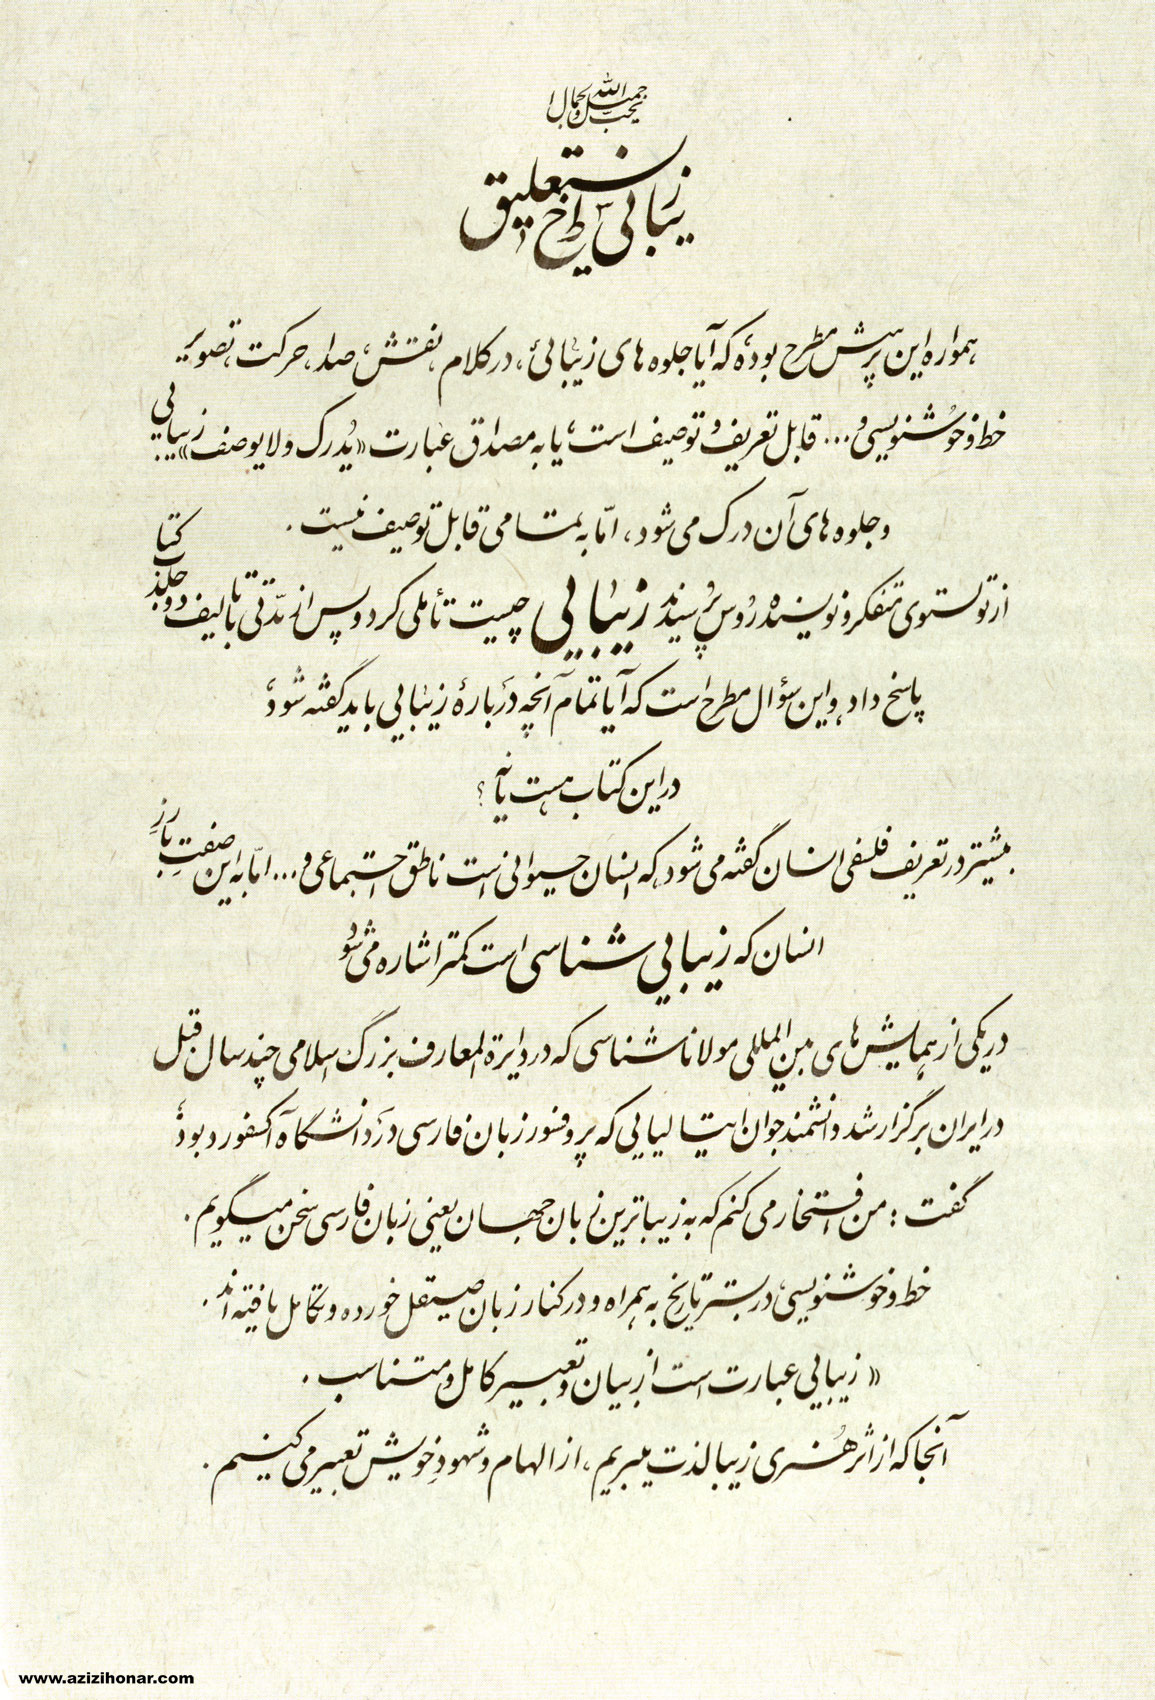 الله جمیل و یحب الجمال
زیبائی خط نستعلیق
همواره این پرسش مطرح بوده که آیا جلوه های زیبائی، در کلام، نقش، صدا، حرکت، تصویر
خط و خوشنویسی و... قابل تعریف و توصیف است، یا به مصداق عبارت «یُدرک و لا یوصف» زیبایی
و جلوه های آن درک می شود، امّا به تمامی قابل توصیف نیست.
از تولستوی متفکر و نویسنده روس پرسیدند زیبایی چیست تأملی کرد و پس از مدّتی با تالیف دو جلد کتاب
پاسخ داد، و این سؤال مطرح است که آیا تمام آنچه دربارهٔ زیبایی باید گفته شود
در این کتاب هست یا نه؟
بیشتر در تعریف فلسفی انسان گفته می شود که انسان حیوانی است ناطق اجتماعی و... امّا به این صفتِ بارزِ
انسان که زیبایی شناسی است کمتر اشاره می شود
در یکی از همایش های بین المللی مولانا شناسی که در دایرة المعارف بزرگ اسلامی چند سال قبل
در ایران برگزار شد دانشمند جوان ایتالیایی که پروفسور زبان فارسی در دانشگاه آکسفورد بود
گفت: من افتخار می کنم که به زیباترین زبان جهان یعنی زبان فارسی سخن میگویم.
خط و خوشنویسی در بستر تاریخ به همراه و در کنار زبان صیقل خورده و تکامل یافته اند.
«زیبایی عبارت است از بیان و تعبیر کامل و متناسب.
آنجا که از اثر هُنری زیبا لذت میبریم، از الهام و شهودِ خویش تعبیر می کنیم.
www.azizihonar.com